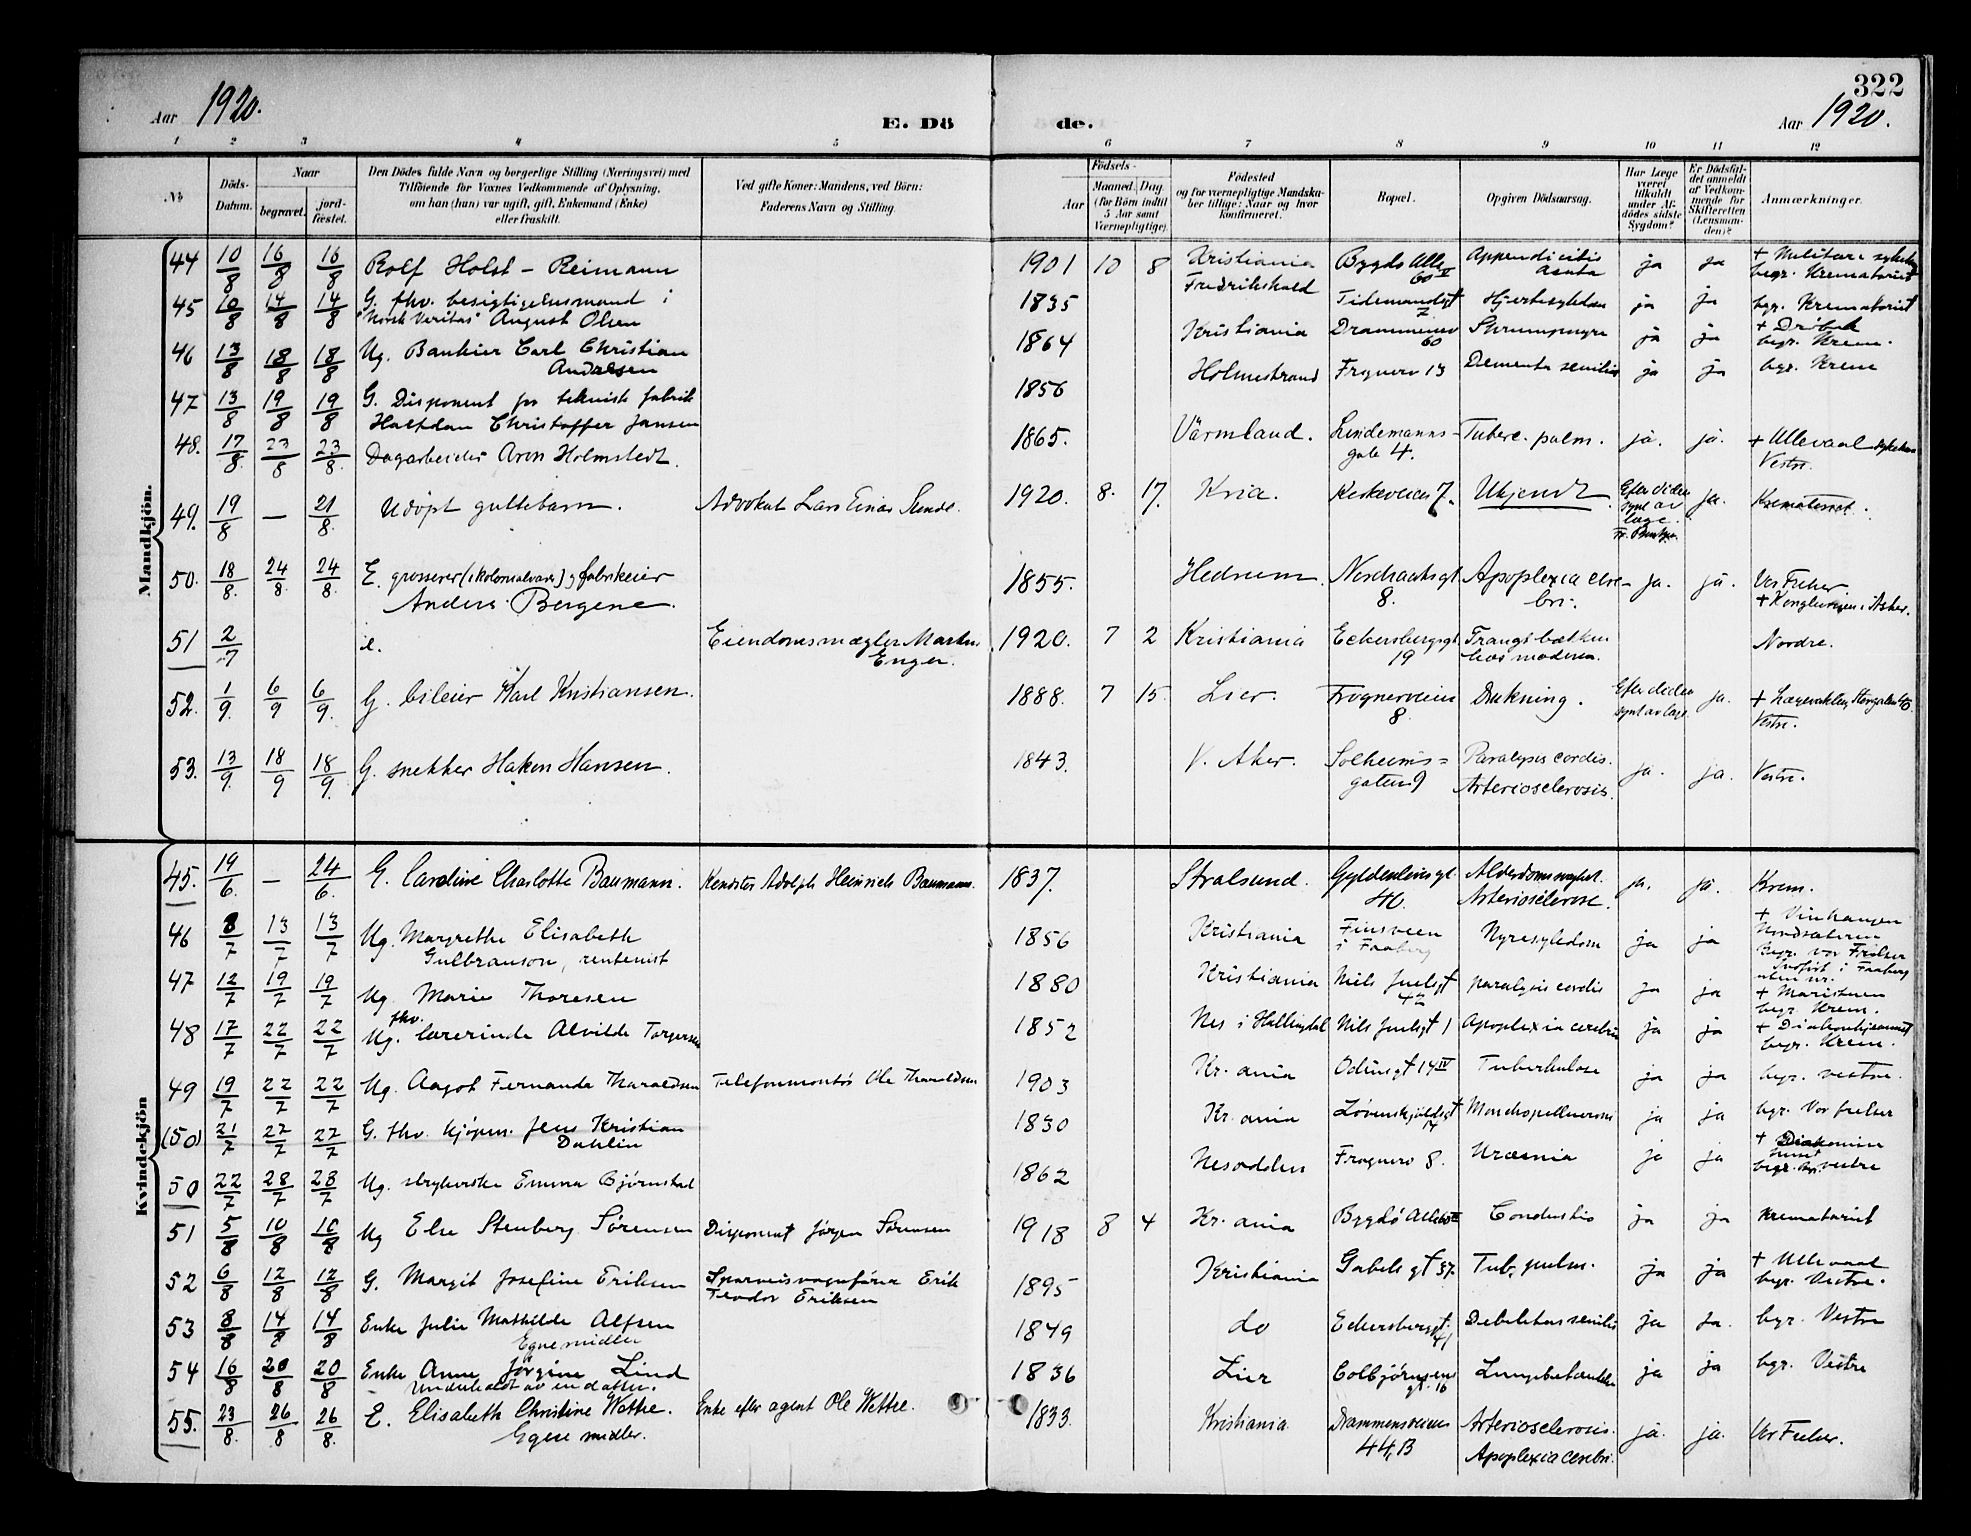 322
Aar 1920.
E. Dö
de.
Aar 1920.
1 2 3 4 5 6 7 8 9 10 11 12
No
Döds-
Datum.
Naar
begravet.
jord-
fæstet.
Den Dödes fulde Navn og borgerlige Stilling (Næringsvei) med
Tilföiende for Voxnes Vedkommende af Oplysning,
om han (hun) var ugift, gift, Enkemand (Enke)
eller fraskilt.
Ved gifte Koner: Mandens, ved Börn:
Faderens Navn og Stilling.
Födsels-
Aar
Maaned. Dag.
(for Börn indtil
5 Aar samt
Værnepligtige)
Födested
og for værnepligtige Mandska-
ber tillige: Naar og hvor
Konfirmeret.
Bopæl.
Opgiven Dödsaarsag.
Har Læge
været
tilkaldt
under Af-
dödes sidste
Sygdom?
Er Dödsfal-
det anmeldt
af Vedkom-
mende for
Skifteretten
(Lensman-
den)?
Anmærkninger.
Mandkjön.
44 10/8 16/8 16/8 Rolf Holst - Reimann 1901 10 8 Kristiania Bygdø Alle 60 II Appendicitis acuta ja ja + Militære sykeh. begr. Krematoriet
45 10/8 14/8 14/8 G. fhv. besigtigelsesmand i
"Norsk Veritas" August Olsen 1835 Fredrikshald Tidemandsgt 2 Hjertesykdom ja ja bgr. Krematoriet
46 13/8 18/8 18/8 Ug. Bankier Carl Christian
Andresen 1864 Kristiania Drammensv 60 Skrumpnyre ja ja + Drøbak begr. Krem.
47 13/8 19/8 19/8 G. Disponent for teknisk fabrik
Halfdan Christoffer Jansen 1856 Holmestrand Frognerv 13 Dementa senilis ja ja bgr. Krem
48. 17/8 23/8 23/8 Dagarbeider Aron Holmstedt. 1865. Värmland. Lindemanns-
gate 4. Tuberc. pulm. ja. ja. + Ullevaal sykehus
Vestre.
49. 19/8 — 21/8 Udöpt guttebarn. Advokat Lars Einar Sunde. 1920. 8. 17. Kria. 7. Ukjendt Efter döden
synt av
læge. ja. Krematoriet.
50. 18/8 24/8 24/8 E. grosserer (i kolonialvarer) og fabrikeier
Anders Bergene. 1855. Hedrum. 8. Apoplexia cere-
bri. ja. ja. Vor Frelser
+ Konglungen i Asker.
51 2/7 Eiendomsmægler Martin
Enger. 1920. 7 2 Kristiania Eckersbergsgt
19 Trangt bækken
hos moderen. Nordre.
52. 1/9 6/9 6/9 G. bileier Karl Kristiansen. 1888. 7 15. Lier. Frognerveien
8. Drukning. Efter döden
synt av læge ja. + Lægevakten, Storgaten 40.
Vestre.
53. 13/9 18/9 18/9 G. snekker Haken Hansen. 1843. V. Aker. Solheims=
gaten 9 Paralysis cordis.
Arteriosclerosis. ja. ja. Vestre.
Kvindekjön
45. 19/6 — 24/6 G. Caroline Charlotte Baumann. Adolph Heinrich Baumann. 1837. Stralsund. Gyldenløvesgt.
40. Alderdomssvakhet.
Arteriosclerose. ja. ja. Krem.
46 8/7 13/7 13/7 Ug. Margrethe Elisabeth
Gulbranson, rentenist 1856 Kristiania
i Faaberg Nyresykdom ja ja Begr. Vor Frelser
47 12/7 19/7 19/7 Ug. Marie Thoresen 1880 Kristiania Niels Juelsgt
42 paralysis cordis ja ja
begr Krem.
48 17/7 22/7 22/7 Ug. fhv. lærerinde Alvilde Torgersen 1852 Nes i Hallingdal Nils Juelsgt 1 Apoplexia cerebri ja ja + Diakonhjemmet
begr. Krem.
49 19/7 22/7 22/7 Ug. Aagot Fernanda Tharaldsen Telefonmontør Ole Tharaldsen 1903 Kr.ania Odinsgt 14 IV Tuberkulose ja ja bgr. vestre.
(50) 21/7 27/7 27/7 G. fhv. kjøpm. Jens Kristian
Dahlin 1830 Kr.ania Løvenskjoldsgt
14 ja ja bgr. Vor frelser
50 22/7 28/7 28/7 Ug. strykerske Emma Bjørnstad 1862 Nesodden Frognerv 8. Uræmia ja ja
vestre
51 5/8 10/8 10/8 Ug Else Stenberg Sørensen Disponent Jørgen Sørensen 1918 8 4 Kr.ania Bygdö Alle ja ja Krematoriet
52 6/8 12/8 12/8 G. Margit Josefine Eriksen Sporveisvognfører Erik
Teodor Eriksen 1895 Kristiania Gabels gt 37 Tub. pulm. ja ja + Ullevaal
begr. Vestre.
53 8/8 14/8 14/8 Enke Julie Mathilde Alfsen
Egne midler 1849 do Eckersbergsgt.
41 Debilitas senilis ja ja. bgr. Vestre
54 16/8 20/8 20/8 Enke Anne Jørgine Lind
Underholdt av en datter. 1836 Lier Colbjørnsens
gt. 16 Lungebetændelse ja ja bgr. Vestre
55. 23/8 26/8 26/8 E. Elisabeth Christine Wettre.
Egne midler. Enke efter agent Ole Wettre. 1833. Kristiania Drammensveien
44,B Arteriosclerosis.
Apoplexia cerebri. ja. ja. Vor Frelser.